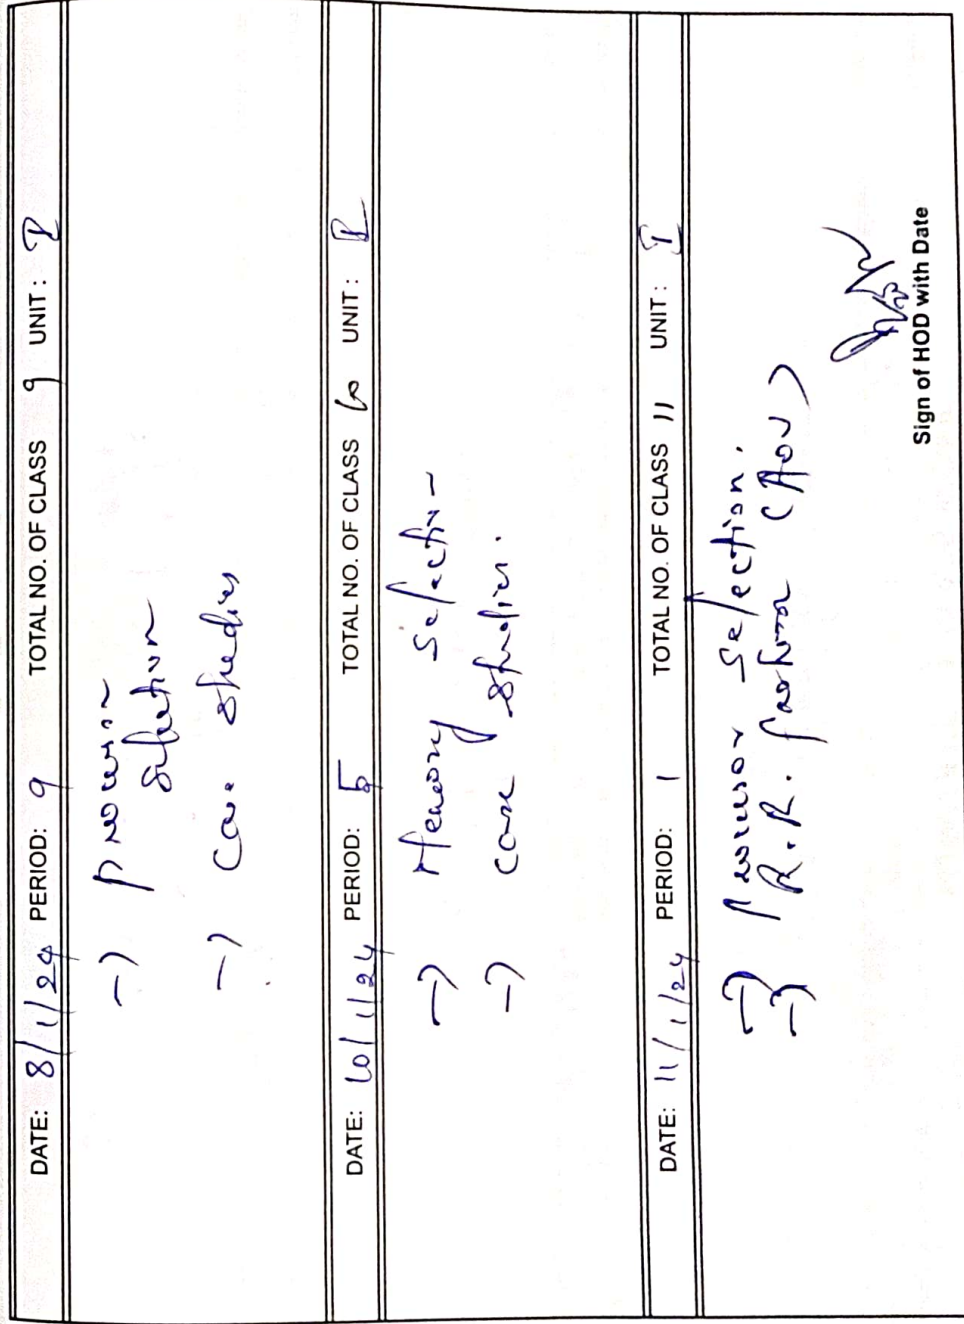 DATE: 8/1/24 PERIOD: 9 TOTAL NO. OF CLASS 9 UNIT: I
→ Processor
Selection
→ Case Studies
DATE: 10/1/24 PERIOD: 5 TOTAL NO. OF CLASS 10 UNIT: I
→ Memory Selection
→ case Studies.
DATE: 11/1/24 PERIOD: 1 TOTAL NO. OF CLASS 11 UNIT: I
→ Processor Selection.
→ R.R. fashion
Sign of HOD with Date